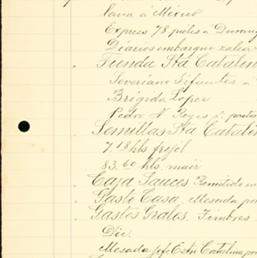 lana á México
Express 78 pieles a Durang
Diarios embarque zalea
Tienda Sta Catalin
Severiano Sifuentes a
Brigida Lopez
Pedro N. Reyes
Semillas Sta Catalin
7 18 hls frijol
83.60 hls maiz
Caja Sauces Remitido
Gasto Casa, Mesada
Gastos Grales. Timbres
Dic.
Mesada Catalina